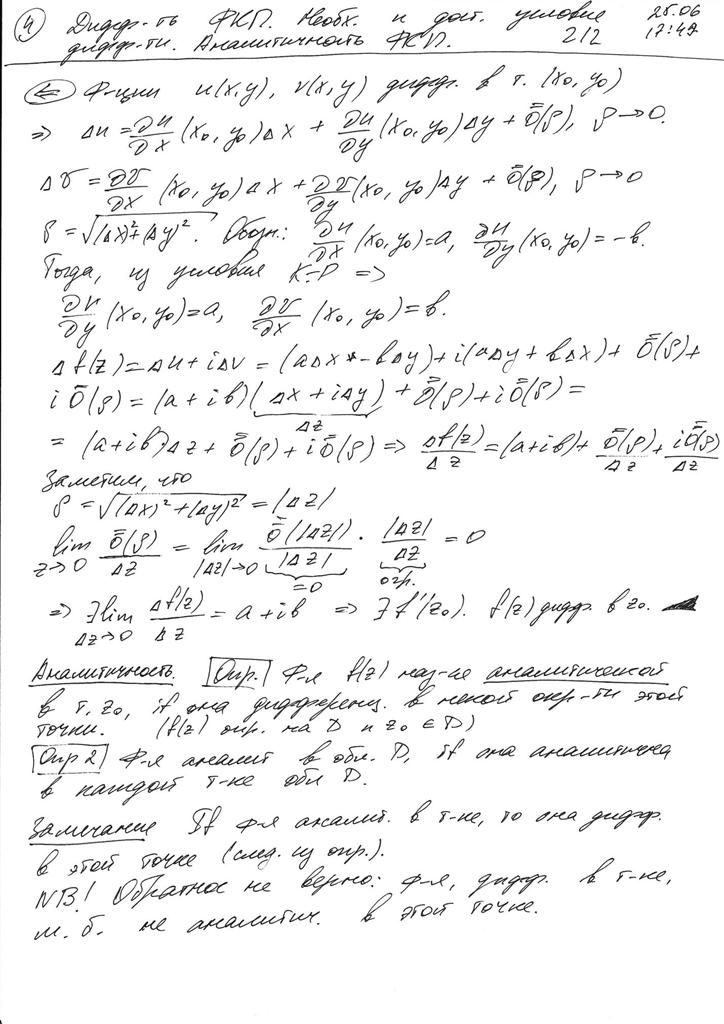 ④ Дифф-ть ФКП. Необх. и дост. условие 25.06
дифф-ти. Аналитичность ФКП. 2/2 17:49
(⇐) Ф-ции u(x,y), v(x,y) дифф. в т. (x₀, y₀)
⇒ Δu = ∂u/∂x (x₀, y₀)Δx + ∂u/∂y (x₀, y₀)Δy + ō̄(ρ), ρ→0.
Δv = ∂v/∂x (x₀, y₀)Δx + ∂v/∂y (x₀, y₀)Δy + ō̄(ρ), ρ→0
ρ = √((Δx)²+(Δy)²). Обозн.: ∂u/∂x (x₀, y₀)=a, ∂u/∂y (x₀, y₀)=-b.
Тогда, из условия К-Р ⇒
∂u/∂y (x₀, y₀)=a, ∂v/∂x (x₀, y₀)=b.
Δf(z)=Δu+iΔv = (aΔx -bΔy)+i(aΔy+bΔx)+ ō̄(ρ)+
i ō̄(ρ) = (a+ib)(Δx+iΔy) + ō̄(ρ)+iō̄(ρ)=
Δz
= (a+ib)Δz + ō̄(ρ)+iō̄(ρ) ⇒ Δf(z)/Δz = (a+ib)+ ō̄(ρ)/Δz + iō̄(ρ)/Δz
Заметим, что
ρ = √((Δx)²+(Δy)²) = |Δz|
lim z→0 ō̄(ρ)/Δz = lim |Δz|→0 ō̄(|Δz|)/|Δz| · |Δz|/Δz = 0
=0 огр.
⇒ ∃ lim Δz→0 Δf(z)/Δz = a+ib ⇒ ∃ f'(z₀). f(z) дифф. в z₀.
Аналитичность. Опр. Ф-я f(z) наз-ся аналитической
в т. z₀, if она дифференц. в некой окр-ти этой
точки. (f(z) опр. на D и z₀ ∈ D)
Опр 2 Ф-я аналит в обл. D, if она аналитична
в каждой т-ке обл D.
Замечание If ф-я аналит. в т-ке, то она дифф.
в этой точке (след. из опр.).
NB! Обратное не верно: ф-я, дифф. в т-ке,
м. б. не аналитич. в этой точке.